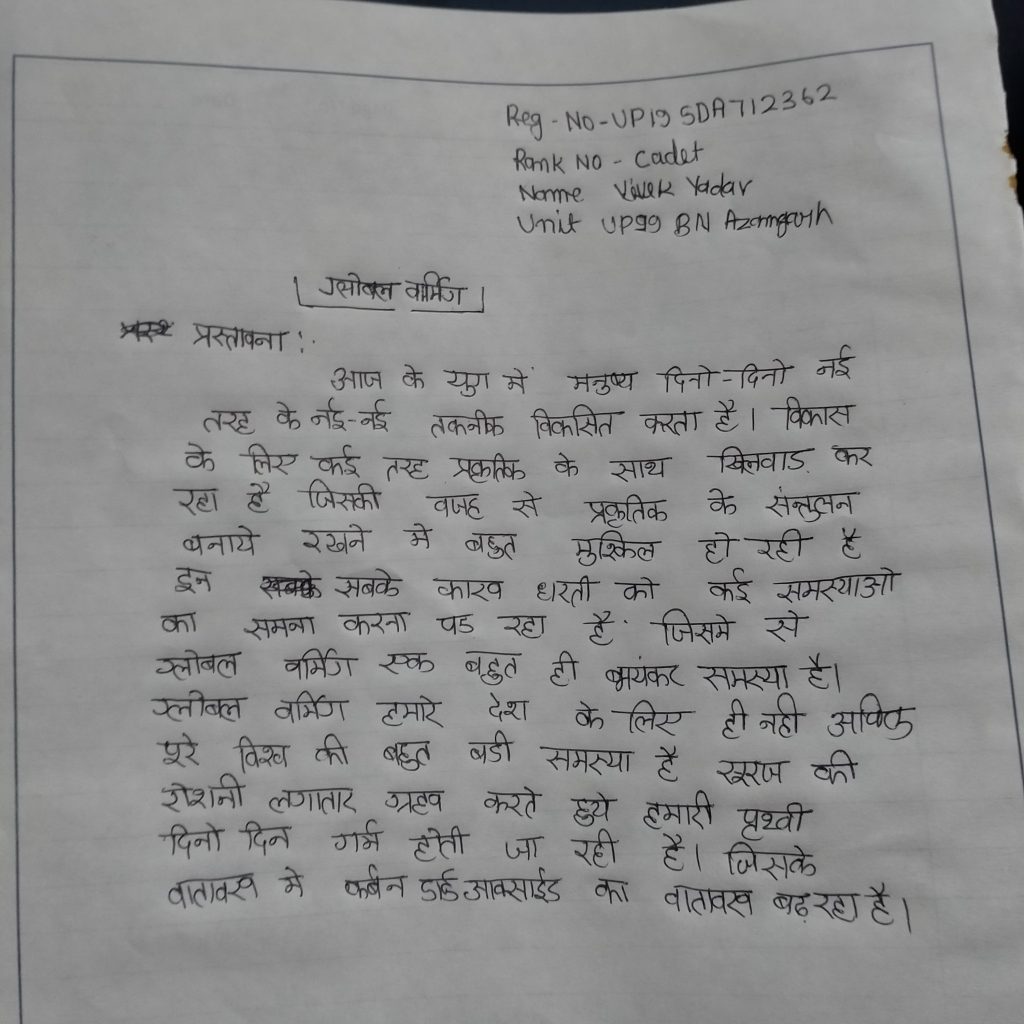 Reg - No - UP19 SDA712362
Rank No - Cadet
Name Vivek Yadav
Unit UP99 BN Azamgarh
ग्लोबल वार्मिंग
प्रस्तावना :
आज के युग में मनुष्य दिनो-दिनो नई
तरह के नई-नई तकनीक विकसित करता है। विकास
के लिए कई तरह प्रकृतिक के साथ खिलवाड़ कर
रहा है जिसकी वजह से प्रकृतिक के संन्तुलन
बनाये रखने मे बहुत मुश्किल हो रही है
इन सबके कारव धरती को कई समस्याओ
का समना करना पड रहा है जिसमे से
ग्लोबल वर्मिंग एक बहुत ही भयंकर समस्या है।
ग्लोबल वर्मिंग हमारे देश के लिए ही नही अपितु
पूरे विश्व की बहुत बडी समस्या है सूरज की
रोशनी लगातार ग्रहव करते हुये हमारी पृथ्वी
दिनो दिन गर्म होती जा रही है। जिसके
वातावरव मे कर्बन डाई-आक्साईड का वातावरव बढ़ रहा है।